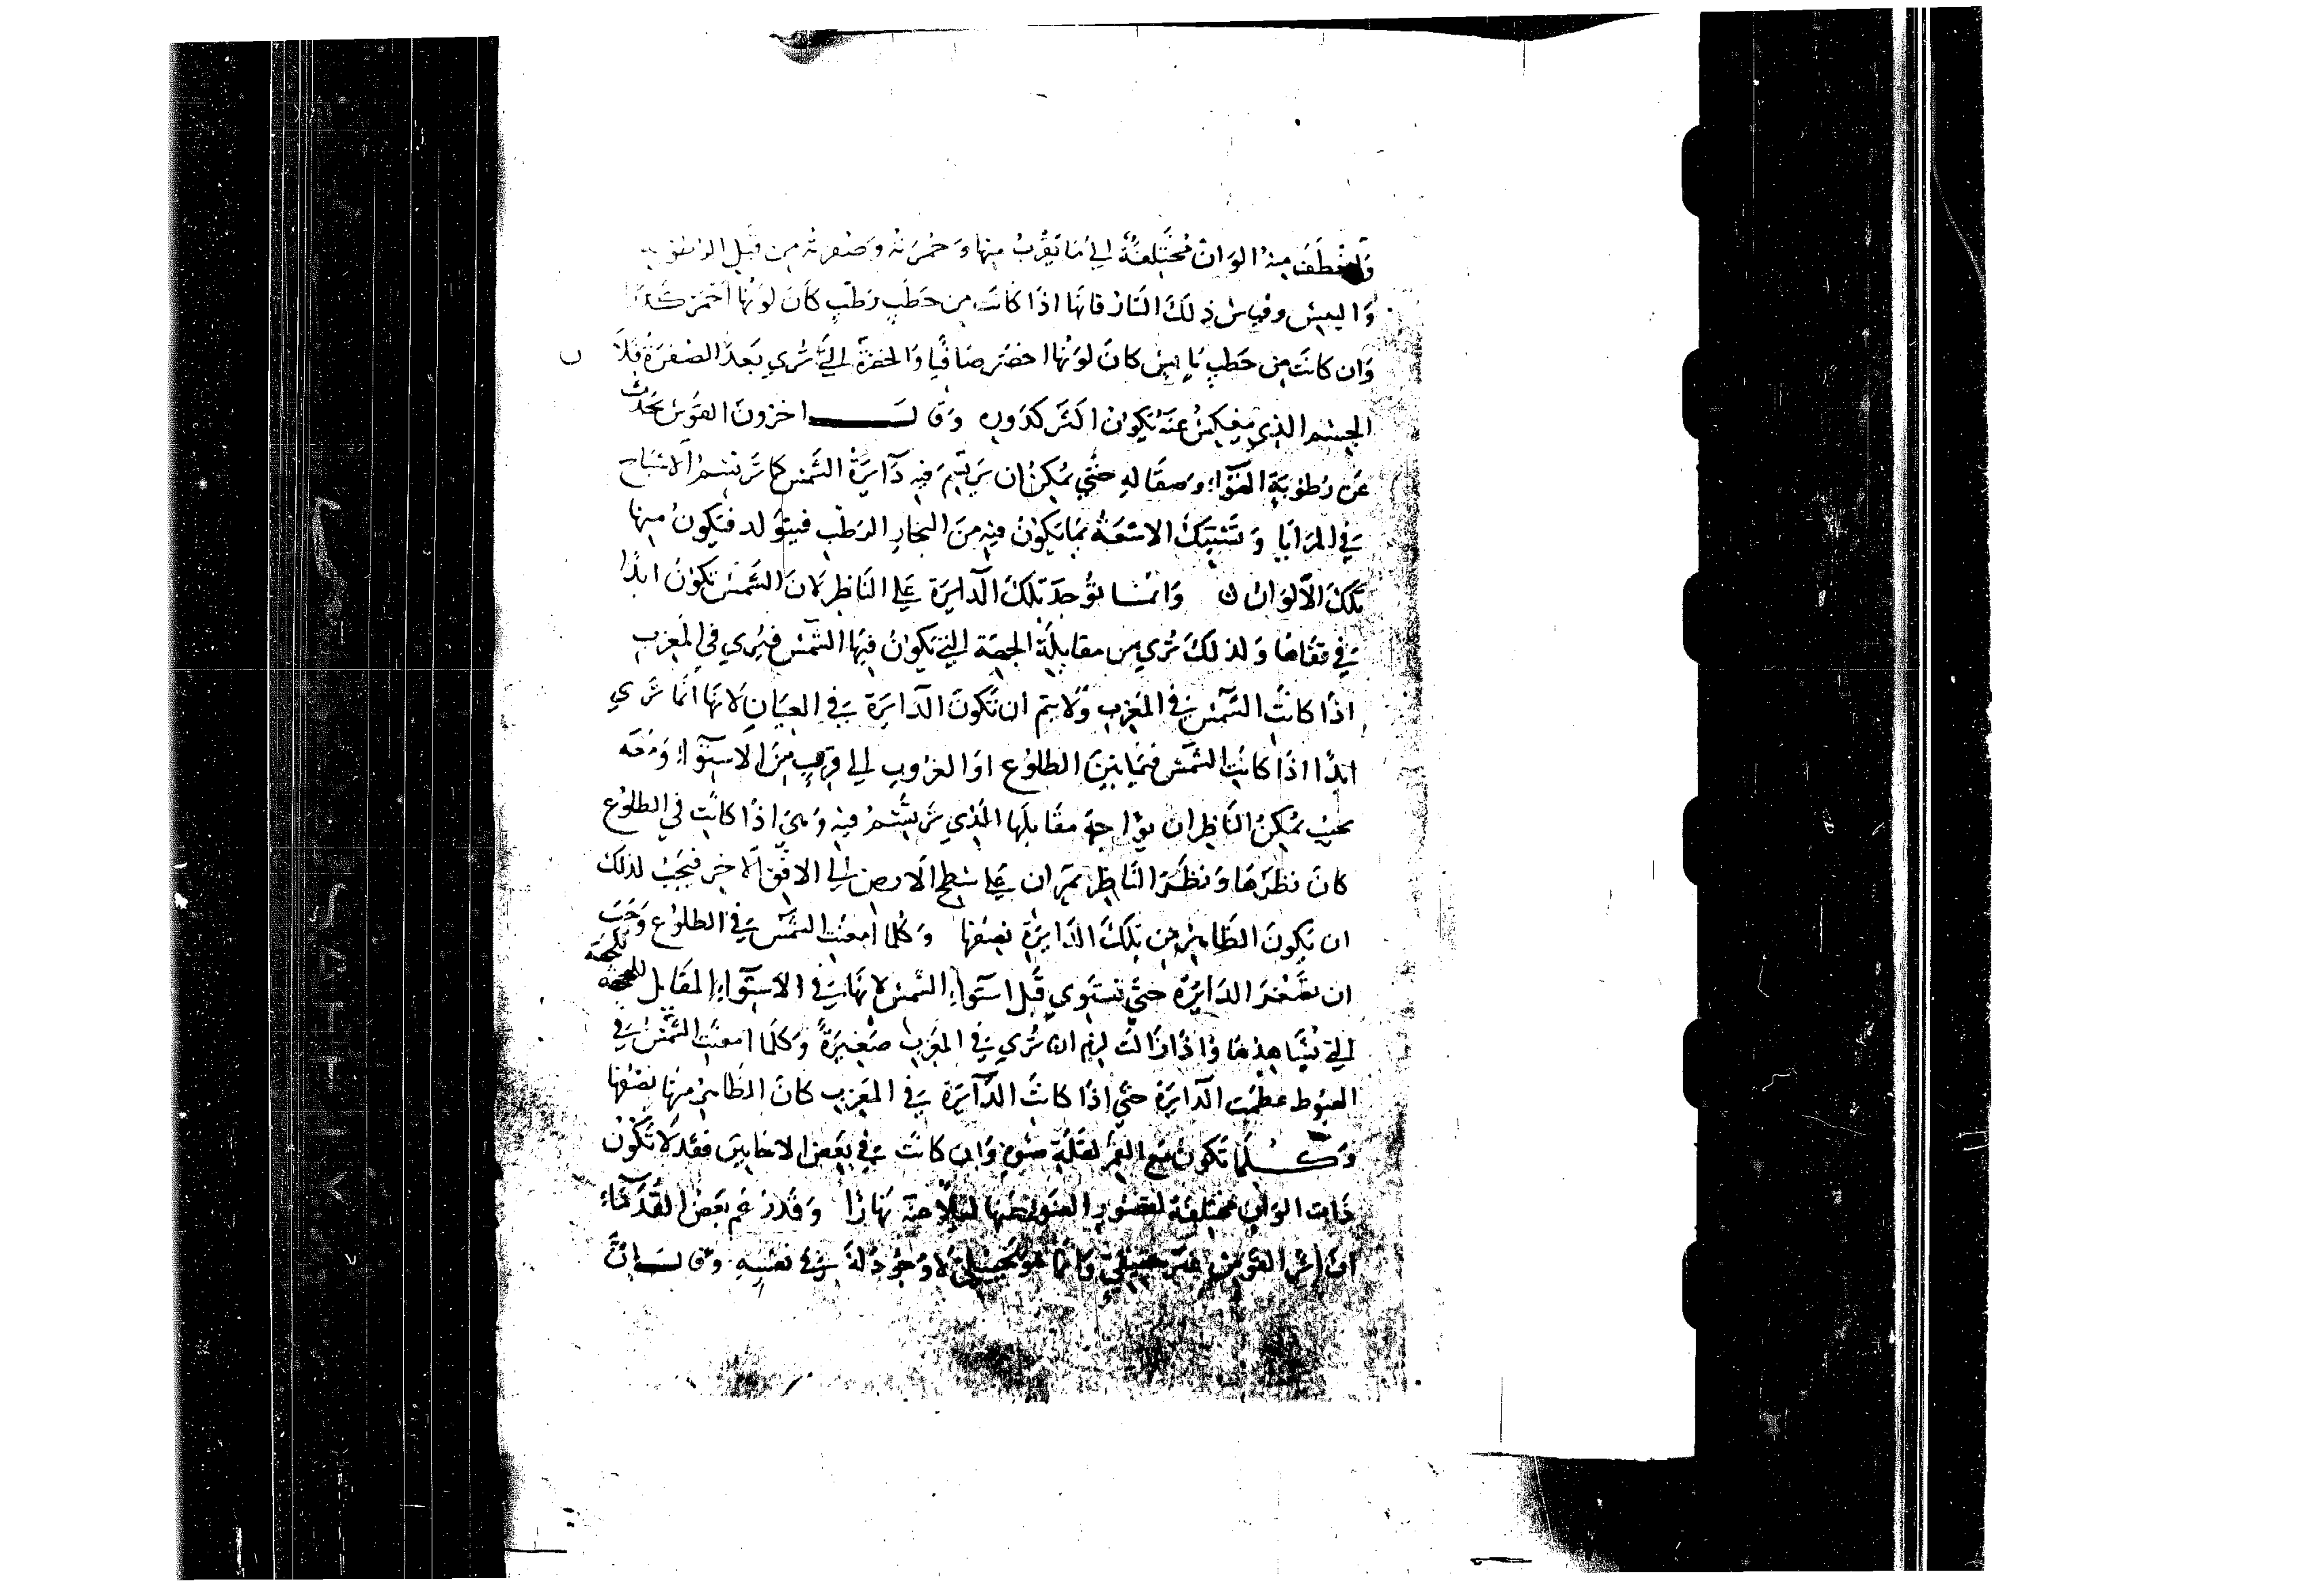 منه الوان مختلفة الى ما يقرب منها وحمرته وصفرته من قبل الرطوبة
واليبس وقياس ذلك النار فانها اذا كانت من حطب رطب كان لونها احمر كدرا
وان كانت من حطب يابس كان لونها اخضر صافيا والخضرة التي ترى بعد الصفرة فلان
الجسم الذي ينعكس عنه يكون اكثر كدورة وقال اخرون القوس تحدث
عن رطوبة الهوآء وصقاله حتى يمكن ان يرتسم فيه دآيرة الشمس كما ترتسم الاشباح
في المرايا وتشتبك الاشعة بما يكون فيه من البخار الرطب فيتولد فتكون منها
تلك الالوان وانما توجد تلك الدآيرة على الناظر لان الشمس تكون ابدا
في قفاها ولذلك ترى من مقابلة الجهة التي يكون فيها الشمس فيرى في المغرب
اذا كانت الشمس في المغرب ولا يتم ان تكون الدآيرة في العيان لانها انما ترى
ابدا اذا كانت الشمس فيما بين الطلوع او الغروب الى قريب من الاستوآء ومعه
بحيث يمكن الناظر ان يواجه مقابلها الذي ترتسم فيه وهي اذا كانت في الطلوع
كان نظرها ونظر الناظر يمران على سطح الارض الى الافق الاخر فيجب لذلك
ان يكون الظاهر من تلك الدايرة نصفها وكلما امعنت الشمس في الطلوع وجب
ان تصغر الدايرة حتى تستوي قبل استوآء الشمس لانها في الاستوآء المقابل للجهة
التي تشاهدها واذا زالت لزم ان ترى في المغرب صغيرة وكلما امعنت الشمس في
الهبوط عظمت الدآيرة حتى اذا كانت الدآيرة في المغرب كان الظاهر منها نصفها
وكلما تكون مع القمر لقلة ضوءه وان كانت في بعض الاحايين فقد لا تكون
ذات الوان مختلفة لقصور الضوء عنها نهارا وقد زعم بعض القدمآء
ان القوس غير حقيقي وانما هو تخييلي لا وجود له في نفسه وقال ان